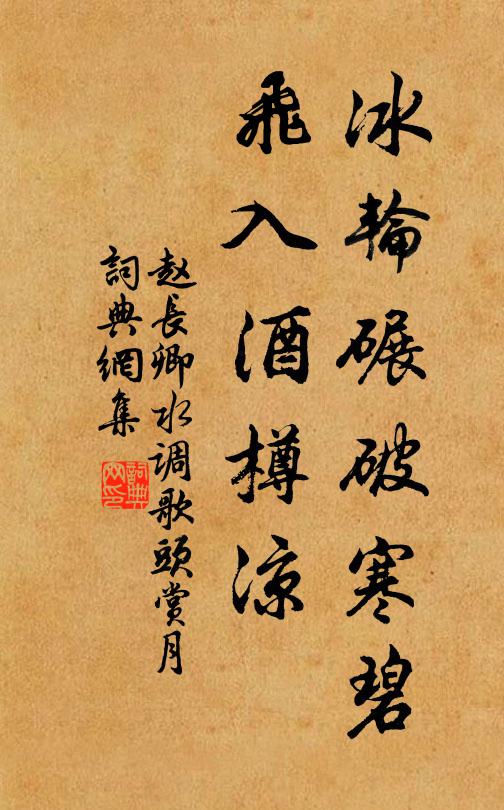 冰輪碾破寒碧
飛入酒樽涼
赵長卿水调歌頭賞月
詞典網集
詞典網印